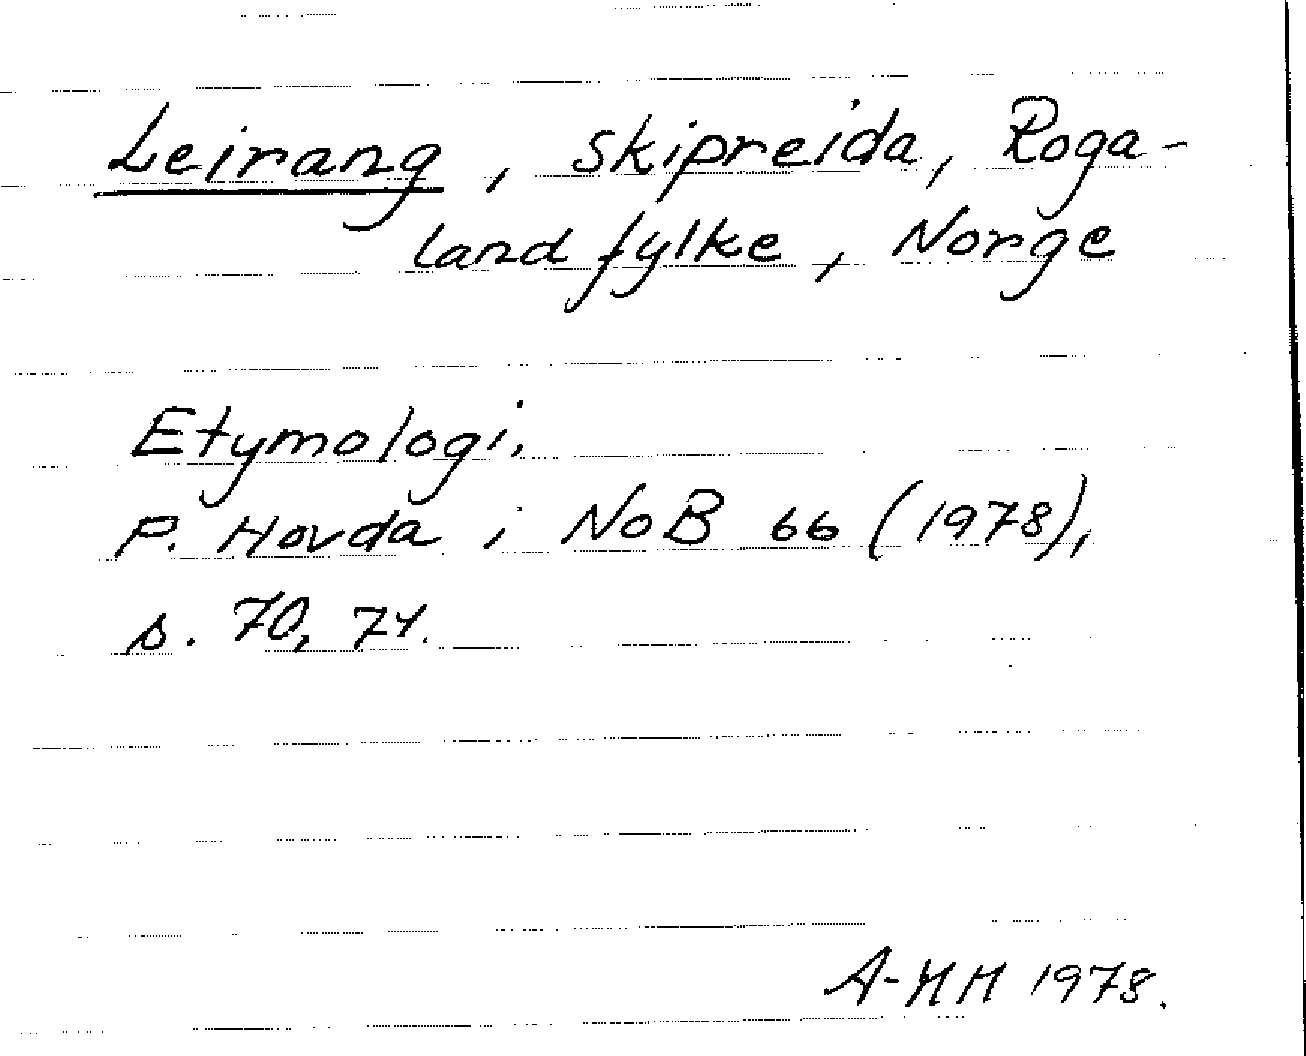 Leirang, skipreida, Roga-
land fylke, Norge
Etymologi.
P. Hovda i NoB 66 (1978),
s. 70, 74.
A-HH 1978.